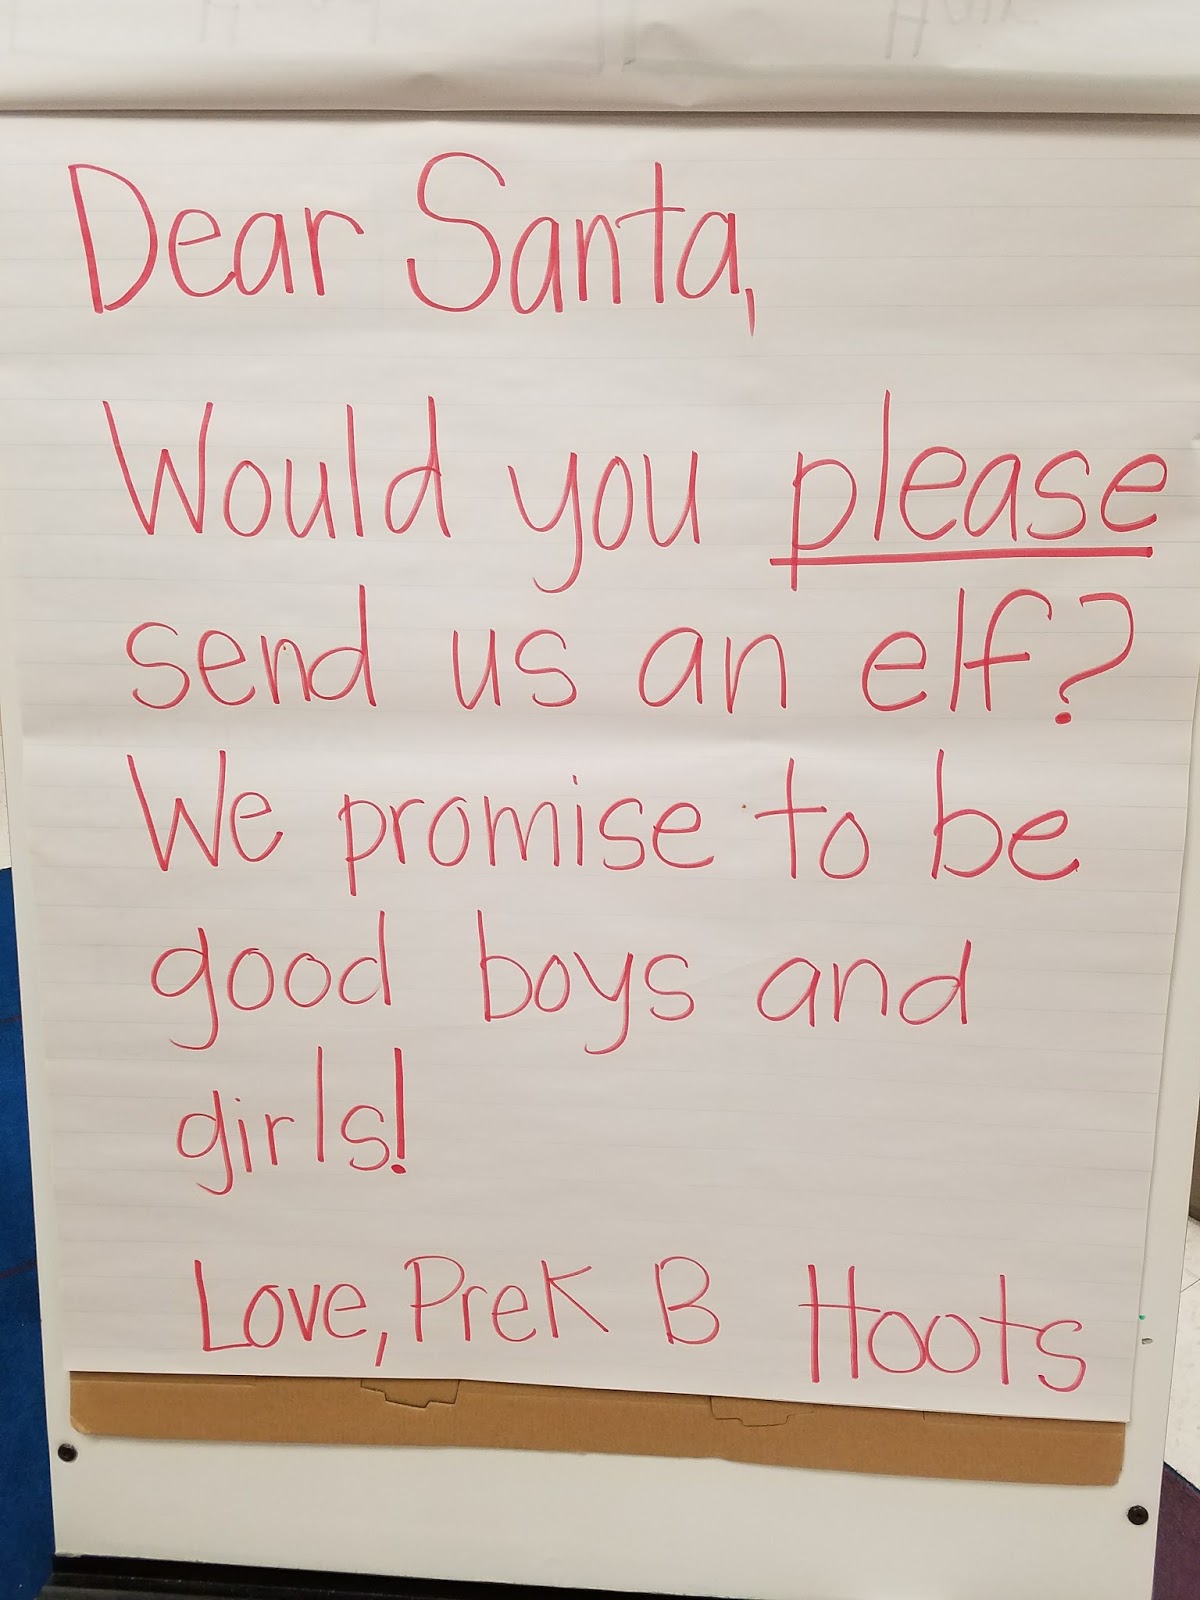 Dear Santa,
Would you please
send us an elf?
We promise to be
good boys and
girls!
Love, PreK B Hoots